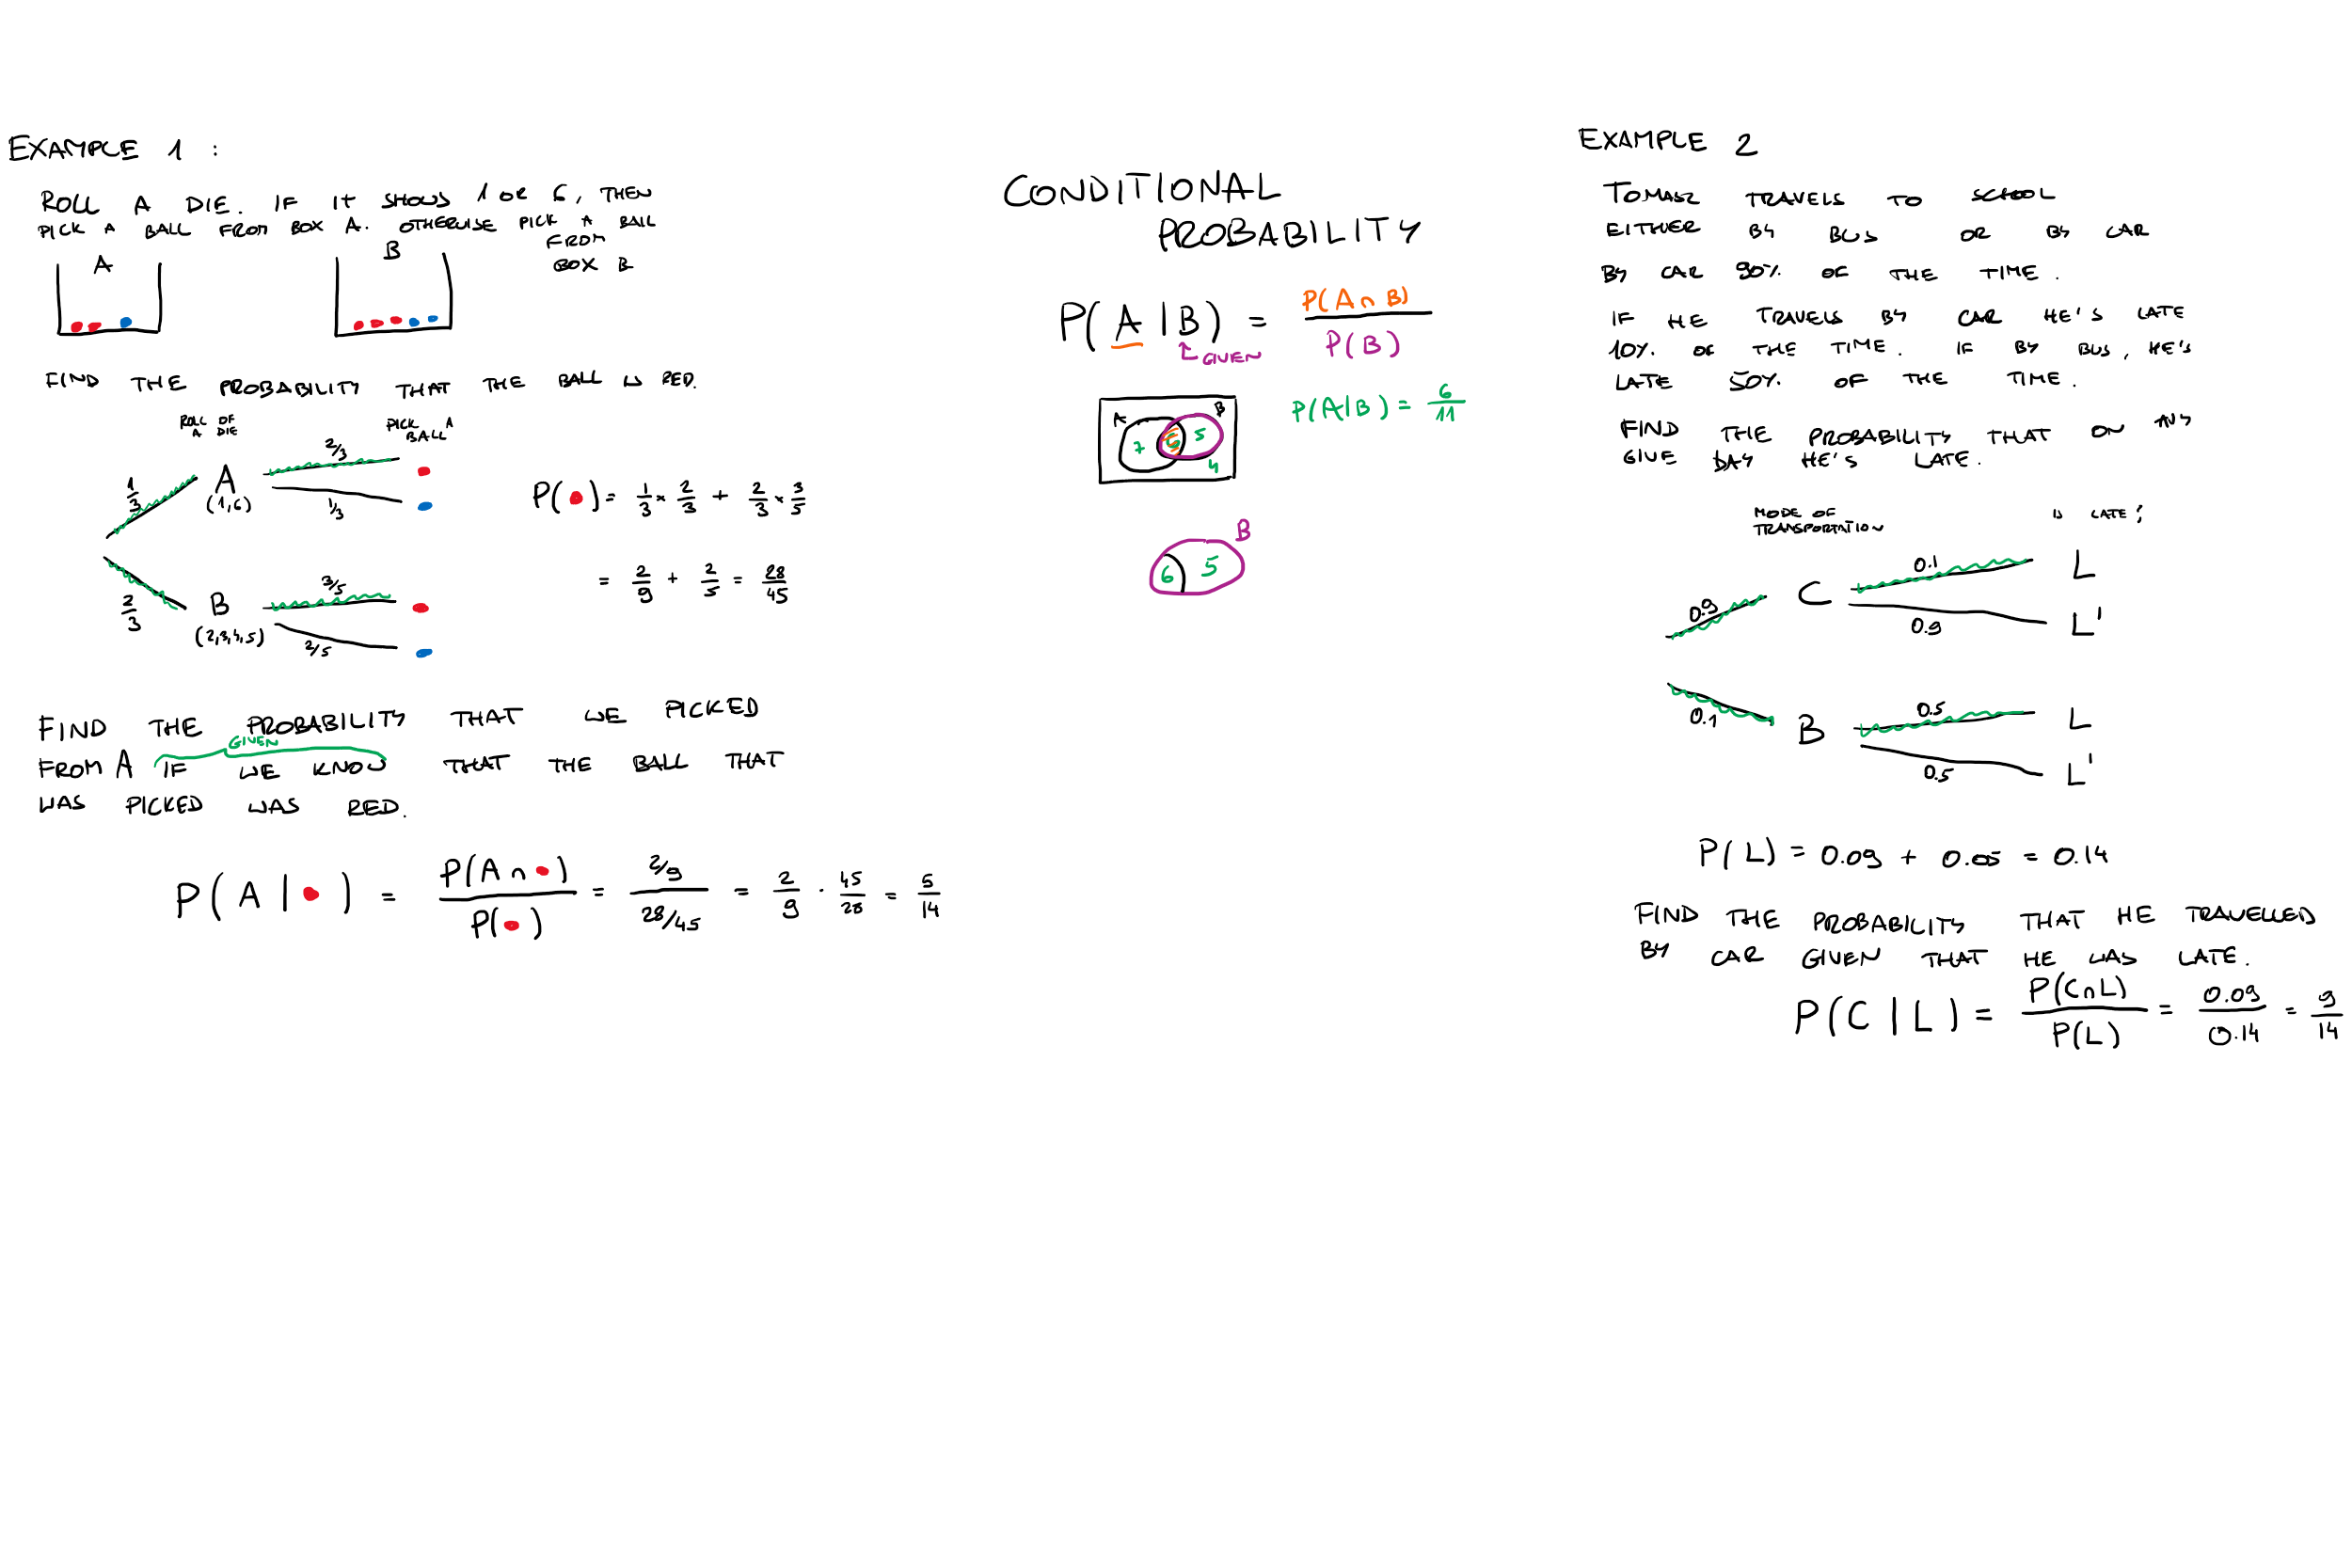 EXAMPLE 1 :
ROLL A DIE. IF IT SHOWS 1 OR 6, THEN
PICK A BALL FROM BOX A. OTHERWISE PICK A BALL
FROM
BOX B
A
B
FIND THE PROBABILITY THAT THE BALL IS RED.
ROLL OF
A DIE
PICK A
BALL
1/3
A
(1,6)
2/3
1/3
2/3
B
(2,3,4,5)
3/5
2/5
P( ) = 1/3 × 2/3 + 2/3 × 3/5
= 2/9 + 2/5 = 28/45
FIND THE PROBABILITY THAT WE PICKED
GIVEN
FROM A IF WE KNOW THAT THE BALL THAT
WAS PICKED WAS RED.
P( A | ) = P(A ∩ )/P( ) = 2/9 / 28/45 = 2/9 · 45/28 = 5/14
CONDITIONAL
PROBABILITY
P( A | B ) = P(A ∩ B)/P(B)
GIVEN
A
B
7
6
5
4
P(A|B) = 6/11
B
6
5
EXAMPLE 2
TOMASZ TRAVELS TO SCHOOL
EITHER BY BUS OR BY CAR
BY CAR 90% OF THE TIME.
IF HE TRAVELS BY CAR HE'S LATE
10% OF THE TIME. IF BY BUS, HE'S
LATE 50% OF THE TIME.
FIND THE PROBABILITY THAT ON ANY
GIVE DAY HE'S LATE.
MODE OF
TRANSPORTATION
IS LATE?
0.9
C
0.1
L
0.9
L'
0.1
B
0.5
L
0.5
L'
P(L) = 0.09 + 0.05 = 0.14
FIND THE PROBABILITY THAT HE TRAVELLED
BY CAR GIVEN THAT HE WAS LATE.
P(C | L) = P(C∩L)/P(L) = 0.09/0.14 = 9/14